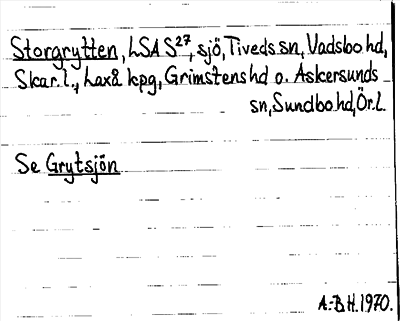 Storgrytten, LSA S27, sjö, Tiveds sn, Vadsbo hd,
Skar.l., Laxå kpg, Grimstens hd o. Askersunds
sn, Sundbo hd, Ör.l.
Se Grytsjön
A.-B.H. 1970.